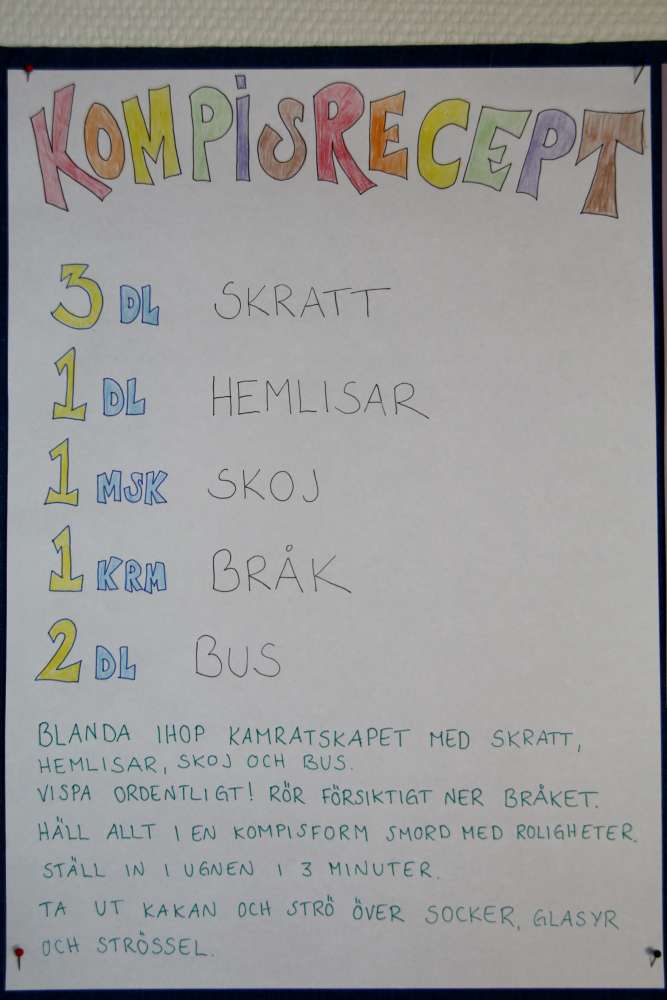 KOMPiSRECEPT
3 DL SKRATT
1 DL HEMLISAR
1 MSK SKOJ
1 KRM BRÅK
2 DL BUS
BLANDA IHOP KAMRATSKAPET MED SKRATT,
HEMLISAR, SKOJ OCH BUS.
VISPA ORDENTLIGT! RÖR FÖRSIKTIGT NER BRÅKET.
HÄLL ALLT I EN KOMPISFORM SMORD MED ROLIGHETER.
STÄLL IN I UGNEN I 3 MINUTER.
TA UT KAKAN OCH STRÖ ÖVER SOCKER, GLASYR
OCH STRÖSSEL.